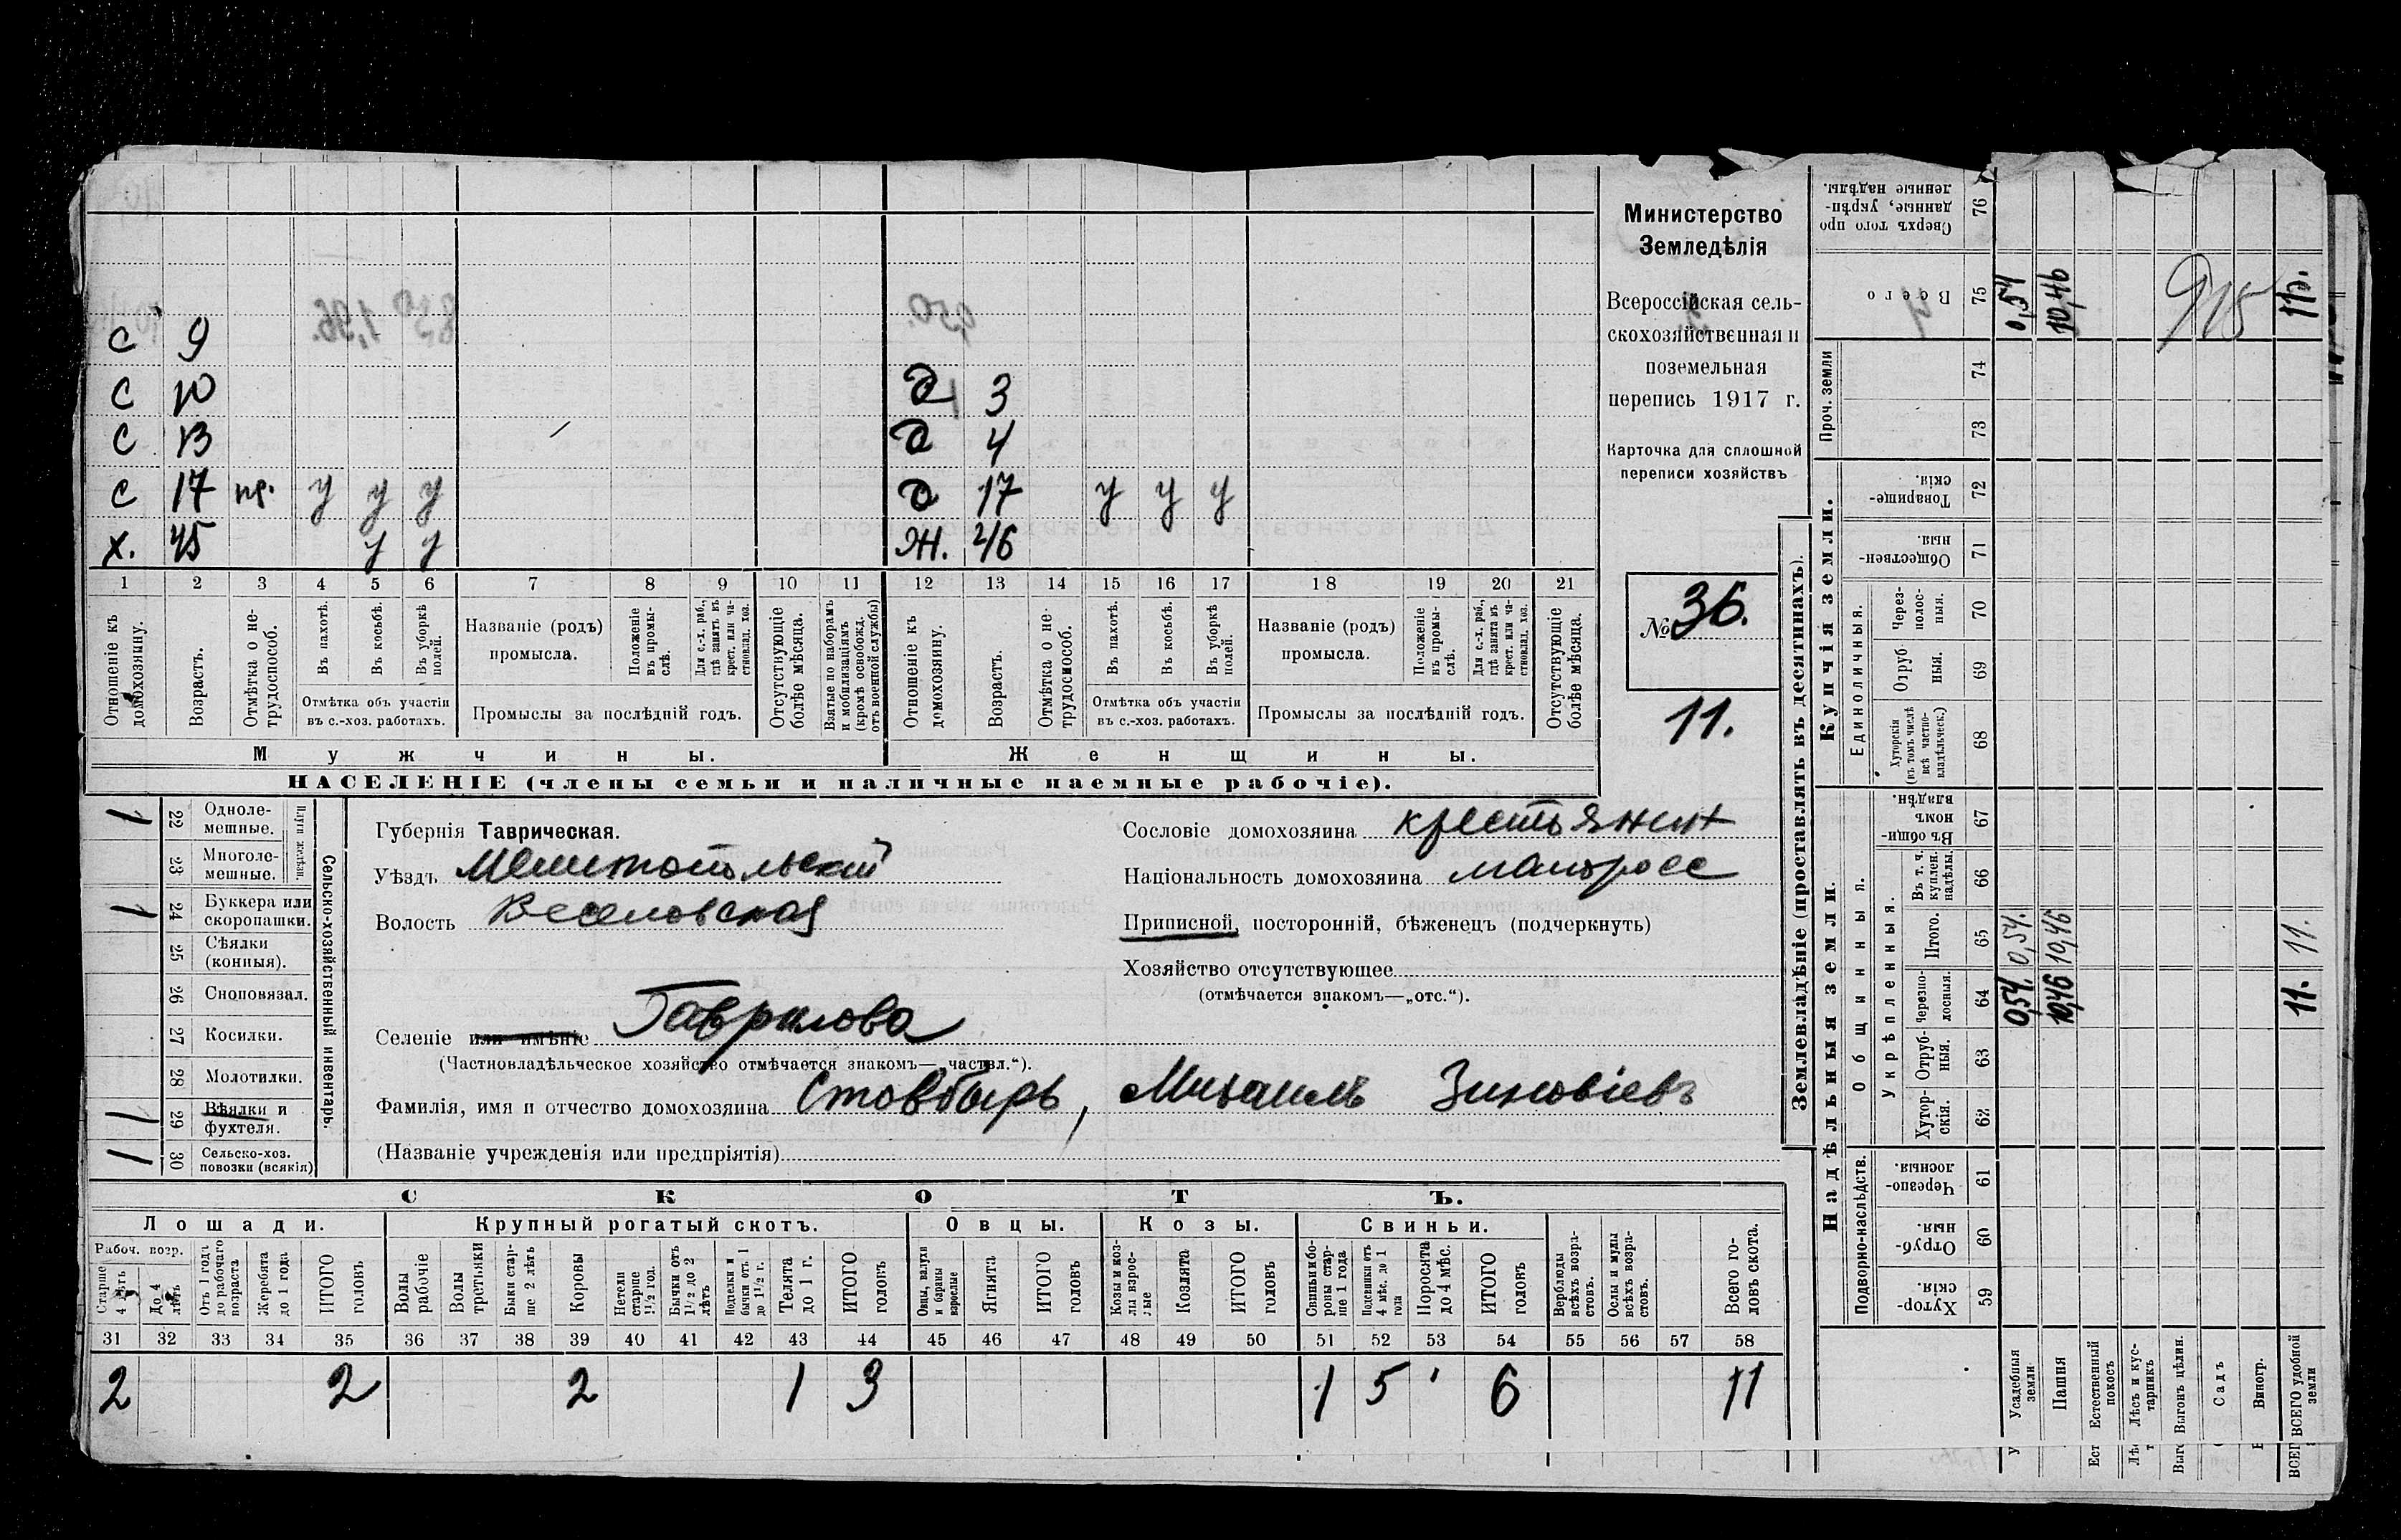 с 9
с 10 д 3
с 13 д 4
с 17 пр. у у у д 17 у у у
х. 45 у у ж. 46
1 2 3 4 5 6 7 8 9 10 11 12 13 14 15 16 17 18 19 20 21
Отношеніе къ домохозяину.
Возрастъ.
Отмѣтка о нетрудоспособ.
Въ пахотѣ.
Въ косьбѣ.
Въ уборкѣ полей.
Отмѣтка объ участіи
въ с.-хоз. работахъ.
Названіе (родъ)
промысла.
Положеніе въ промыслѣ.
Для с.-х. раб., гдѣ занятъ въ крест. или частновлад. хоз.
Промыслы за послѣдній годъ.
Отсутствующіе болѣе мѣсяца.
Взятые по наборамъ и мобилизаціямъ (кромѣ освобожд. отъ военной службы)
Отношеніе къ домохозяину.
Возрастъ.
Отмѣтка о нетрудоспособ.
Въ пахотѣ.
Въ косьбѣ.
Въ уборкѣ полей.
Отмѣтка объ участіи
въ с.-хоз. работахъ.
Названіе (родъ)
промысла.
Положеніе въ промыслѣ.
Для с.-х. раб., гдѣ занята въ крест. или частновлад. хоз.
Промыслы за послѣдній годъ.
Отсутствующіе болѣе мѣсяца.
Мужчины. Женщины.
НАСЕЛЕНІЕ (члены семьи и наличные наемные рабочіе).
Министерство
Земледѣлія
Всероссійская сель-
скохозяйственная и
поземельная
перепись 1917 г.
Карточка для сплошной
переписи хозяйствъ
№ 36.
11.
1 22 Одноле-
мешные.
23 Многоле-
мешные.
Плуги желѣзн.
1 24 Буккера или
скоропашки.
25 Сѣялки
(конныя).
26 Сноповязал.
27 Косилки.
28 Молотилки.
1 29 Вѣялки и
фухтеля.
1 30 Сельско-хоз.
повозки (всякія)
Сельско-хозяйственный инвентарь.
Губернія Таврическая.
Уѣздъ Мелитопольский
Волость Веселовская
Селеніе или имѣніе Гаврилова
(Частновладѣльческое хозяйство отмѣчается знакомъ—„частвл.“).
Фамилія, имя и отчество домохозяина Стовбырь, Михаилъ Зиновіевъ
(Названіе учрежденія или предпріятія)
Сословіе домохозяина крестьянин
Національность домохозяина малоросс
Приписной, посторонній, бѣженецъ (подчеркнуть)
Хозяйство отсутствующее
(отмѣчается знакомъ—„отс.“).
СКОТЪ.
Лошади. Крупный рогатый скотъ. Овцы. Козы. Свиньи.
Рабоч. возр.
Старше 4 лѣтъ
До 4 лѣтъ
Отъ 1 года до рабочаго возраста
Жеребята до 1 года
ИТОГО головъ
Волы рабочіе
Волы третьяки
Быки старше 2 лѣтъ
Коровы
Нетели старше 1½ год.
Бычки отъ 1½ до 2 лѣтъ
Подтелки и бычки отъ 1 до 1½ г.
Телята до 1 г.
ИТОГО головъ
Овцы, валухи и бараны взрослые
Ягнята
ИТОГО головъ
Козы и козлы взрослые
Козлята
ИТОГО головъ
Свиньи и боровы старше 1 года
Подсвинки отъ 4 мѣс. до 1 года
Поросята до 4 мѣс.
ИТОГО головъ
Верблюды всѣхъ возрастовъ.
Ослы и мулы всѣхъ возрастовъ.
Всего головъ скота.
31 32 33 34 35 36 37 38 39 40 41 42 43 44 45 46 47 48 49 50 51 52 53 54 55 56 57 58
2 2 2 1 3 1 5 6 11
Землевладѣніе (проставлять въ десятинахъ).
Купчія земли.
Надѣльныя земли.
Сверхъ того проданные, укрѣпленные надѣлы. 76
Всего 75 0,54 10,46 11.
915
Проч. земли 74
73
Товарищескія. 72
Общественныя. 71
Единоличныя.
Черезполосныя. 70
Отрубныя. 69
Хуторскія (въ томъ числѣ всѣ частновладѣльческ.) 68
Въ общинномъ владѣн. 67
Общинныя.
Укрѣпленныя.
Въ т. ч. куплен. надѣлы. 66
Итого. 65 0,54. 10,46 11.
Черезполосныя. 64 0,54. 10,46 11.
Отрубныя. 63
Хуторскія. 62
Подворно-наслѣдств.
Черезполосныя. 61
Отрубныя. 60
Хуторскія. 59
Усадебныя земли
Пашня
Естественный покосъ
Лѣсъ и кустарникъ
Выгонъ цѣлин.
Садъ
Виногр.
ВСЕГО удобной земли